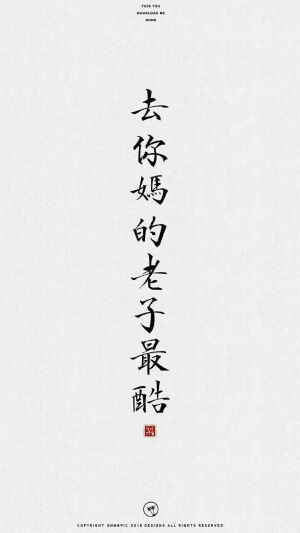 FUCK YOU
DOWNLOAD ME
去你媽的老子最酷
COPYRIGHT ©NHMBPIC 2015 DESIGNS ALL RIGHTS RESERVED